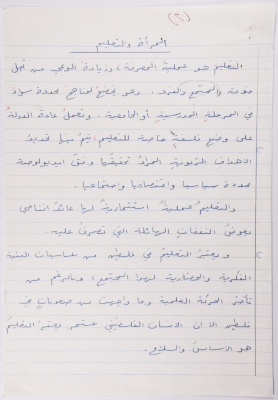 (٣)
المرأة والتعليم
التعليم هو عملية المعرفة، وزيادة الوعي من أجل
خدمة المجتمع والفرد. وهو يخضع لمناهج محددة سواء
في المرحلة المدرسية أو الجامعية. وتعمل عادة الدولة
على وضع فلسفة خاصة للتعليم، يتم فيها تحديد
الأهداف التربوية المراد تحقيقها وفق ايديولوجية
محددة سياسيا واقتصاديا واجتماعيا.
والتعليم عملية استثمارية لها عائد انتاجي
يعوض النفقات الهائلة التي تصرف عليه.
ويعتبر التعليم في فلسطين من أساسيات البنية
الفكرية والحضارية لهذا المجتمع، وبالرغم من
تأخر الحركة العلمية وما واجهت من صعوبات في
فلسطين الا ان الانسان الفلسطيني يعتبر التعليم
هو الأساس والسلاح.